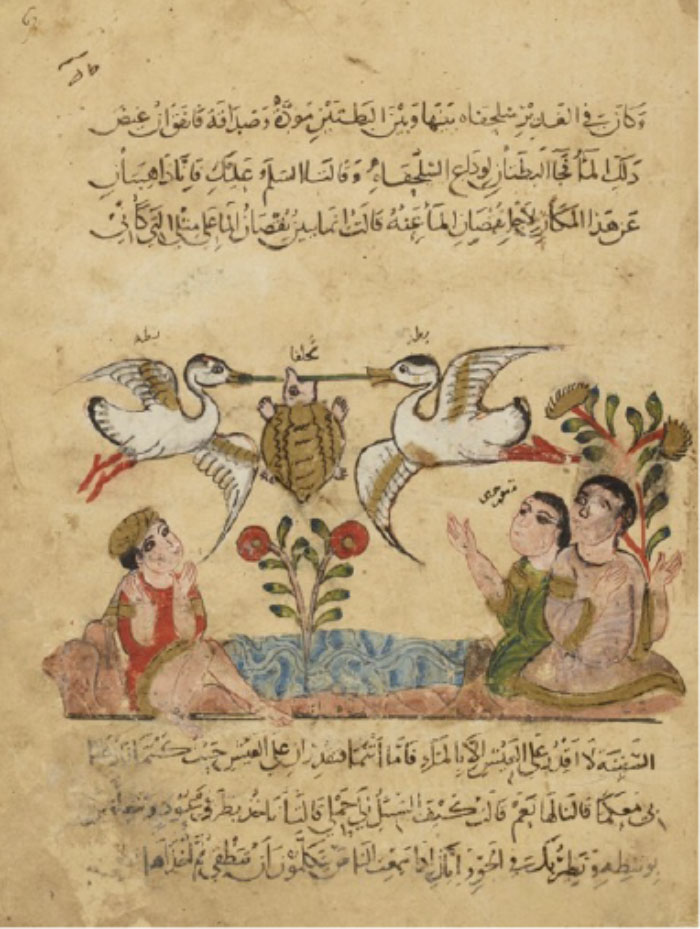 وكان في الغدير سلحفاه بينها وبين البطتين مودة وصداقه فاتفق ان غيض
ذلك الماء فجاءت البطتان لوداع السلحفاة وقالتا السلم عليك فاننا ذاهبتان
عن هذا المكان لاجل نقصان الماء عنه قالت انما يبين نقصان الماء على مثلي التي كاني
بطه
سلحفا
بط
السفينة لا اقدر على العيش الا بالماء فاما انتما فتقدران على العيش حيث كنتما فاذهبا
بي معكما قالتا لها نعم قالت كيف السبيل الى حملي قالتا ناخذ بطرفي عود وتتعلقين
بوسطه ونطير بك في الجو واياك اذا سمعت الناس يتكلمون ان تنطقي ثم اخذاها